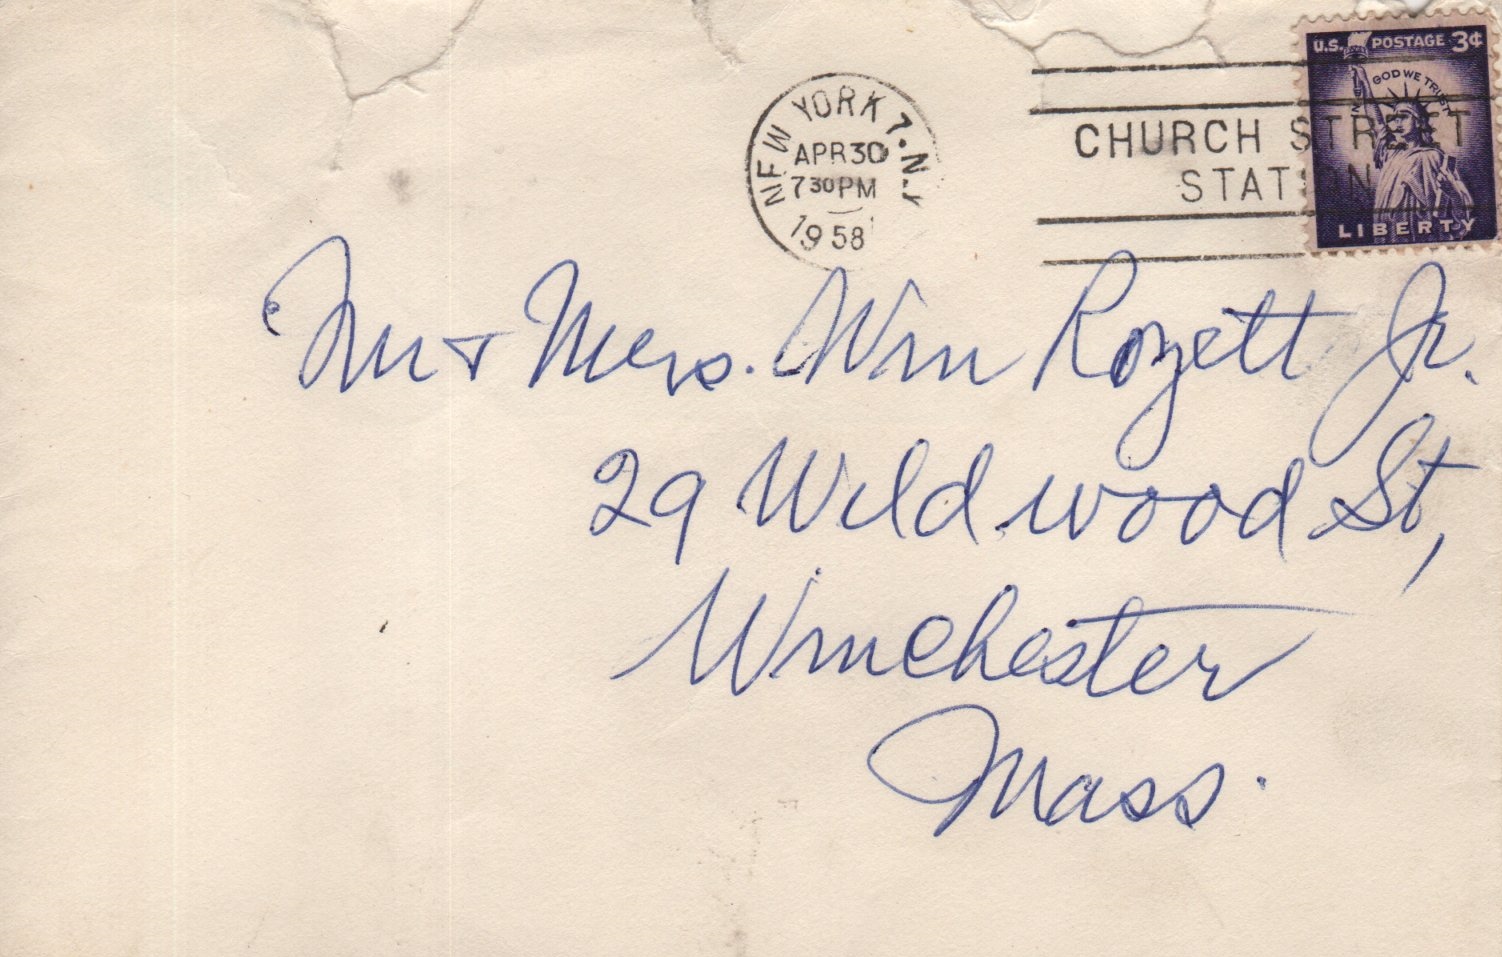 U.S. POSTAGE 3¢
GOD WE TRUST
LIBERTY
NEW YORK 7. N.Y
APR 30
7 30 PM
1958
CHURCH STREET
STATION
Mr + Mrs. Wm Rozett Jr.
29 Wildwood St,
Winchester
Mass.